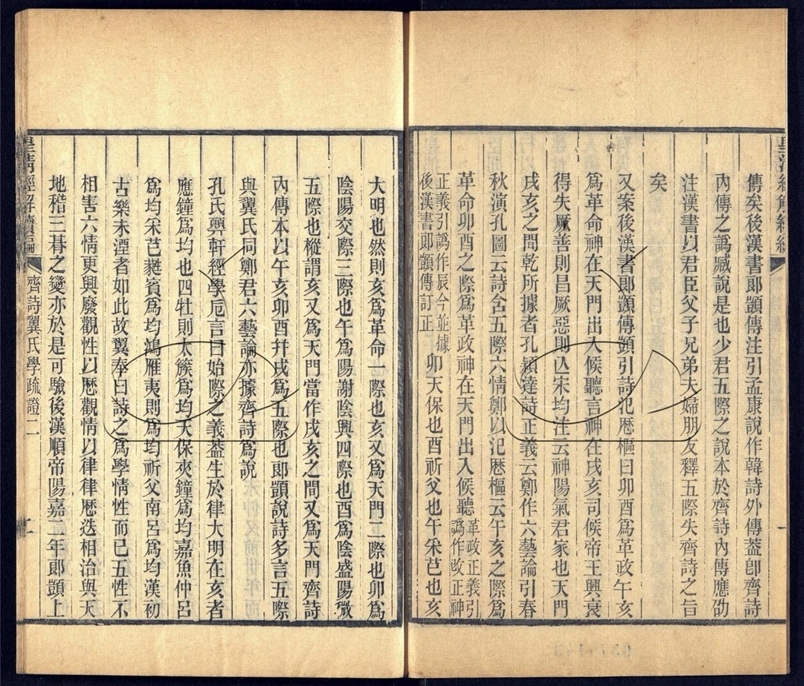 傳矣後漢書郎顗傳注引孟康說作韓詩外傳蓋卽齊詩
內傳之譌臧說是也少君五際之說本於齊詩內傳應劭
注漢書以君臣父子兄弟夫婦朋友釋五際失齊詩之旨
矣
又案後漢書郎顗傳顗引詩氾歷樞曰卯酉爲革政午亥
爲革命神在天門出入候聽言神在戌亥司候帝王興衰
得失厥善則昌厥惡則亾宋均注云神陽氣君象也天門
戌亥之間乾所據者孔穎達詩正義云鄭作六藝論引春
秋演孔圖云詩含五際六情鄭以汜歷樞云午亥之際爲
革命卯酉之際爲革政神在天門出入候聽革政正義引譌作改正神
正義引譌作辰今並據後漢書郎顗傳訂正卯天保也酉祈父也午采芑也亥
大明也然則亥爲革命一際也亥又爲天門二際也卯爲
陰陽交際三際也午爲陽謝陰興四際也酉爲陰盛陽微
五際也樅謂亥又爲天門當作戌亥之間又爲天門齊詩
內傳本以午亥卯酉幷戌爲五際也郎顗說詩多言五際
與翼氏同鄭君六藝論亦據齊詩爲說
孔氏㢲軒經學卮言曰始際之義葢生於律大明在亥者
應鐘爲均也四牡則太簇爲均天保夾鐘爲均嘉魚仲呂
爲均采芑蕤賓爲均鴻雁夷則爲均祈父南呂爲均漢初
古樂未湮者如此故翼奉曰詩之爲學情性而已五性不
相害六情更興廢觀性以歷觀情以律律歷迭相治與天
地稽三朞之變亦於是可驗後漢順帝陽嘉二年郎顗上
皇淸經解續編
齊詩翼氏學疏證二